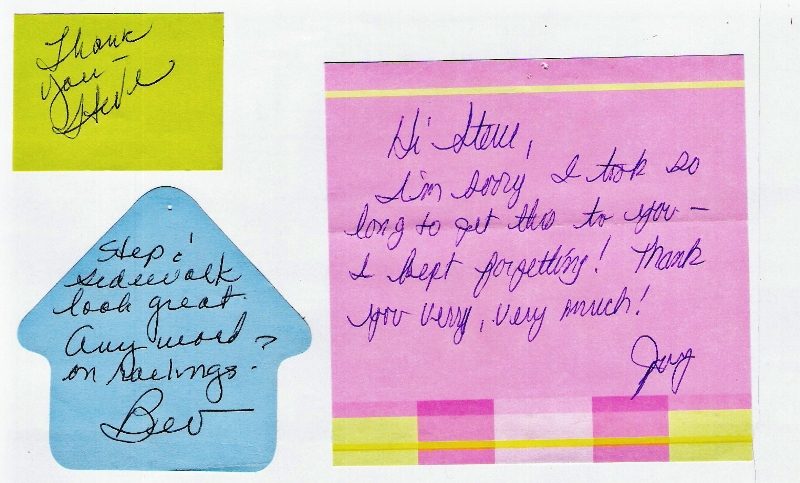 Thank
you –
Steve
Step &
sidewalk
look great.
Any word
on railings?
Bev
Hi Steve,
I'm sorry I took so
long to get this to you –
I kept forgetting! Thank
you very, very much!